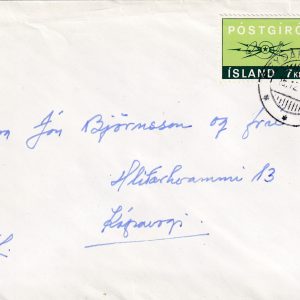 PÓSTGÍRÓ
ÍSLAND 7 KR
Jón Björnsson og frú
Hlíðarhvammi 13
Kópavogi.